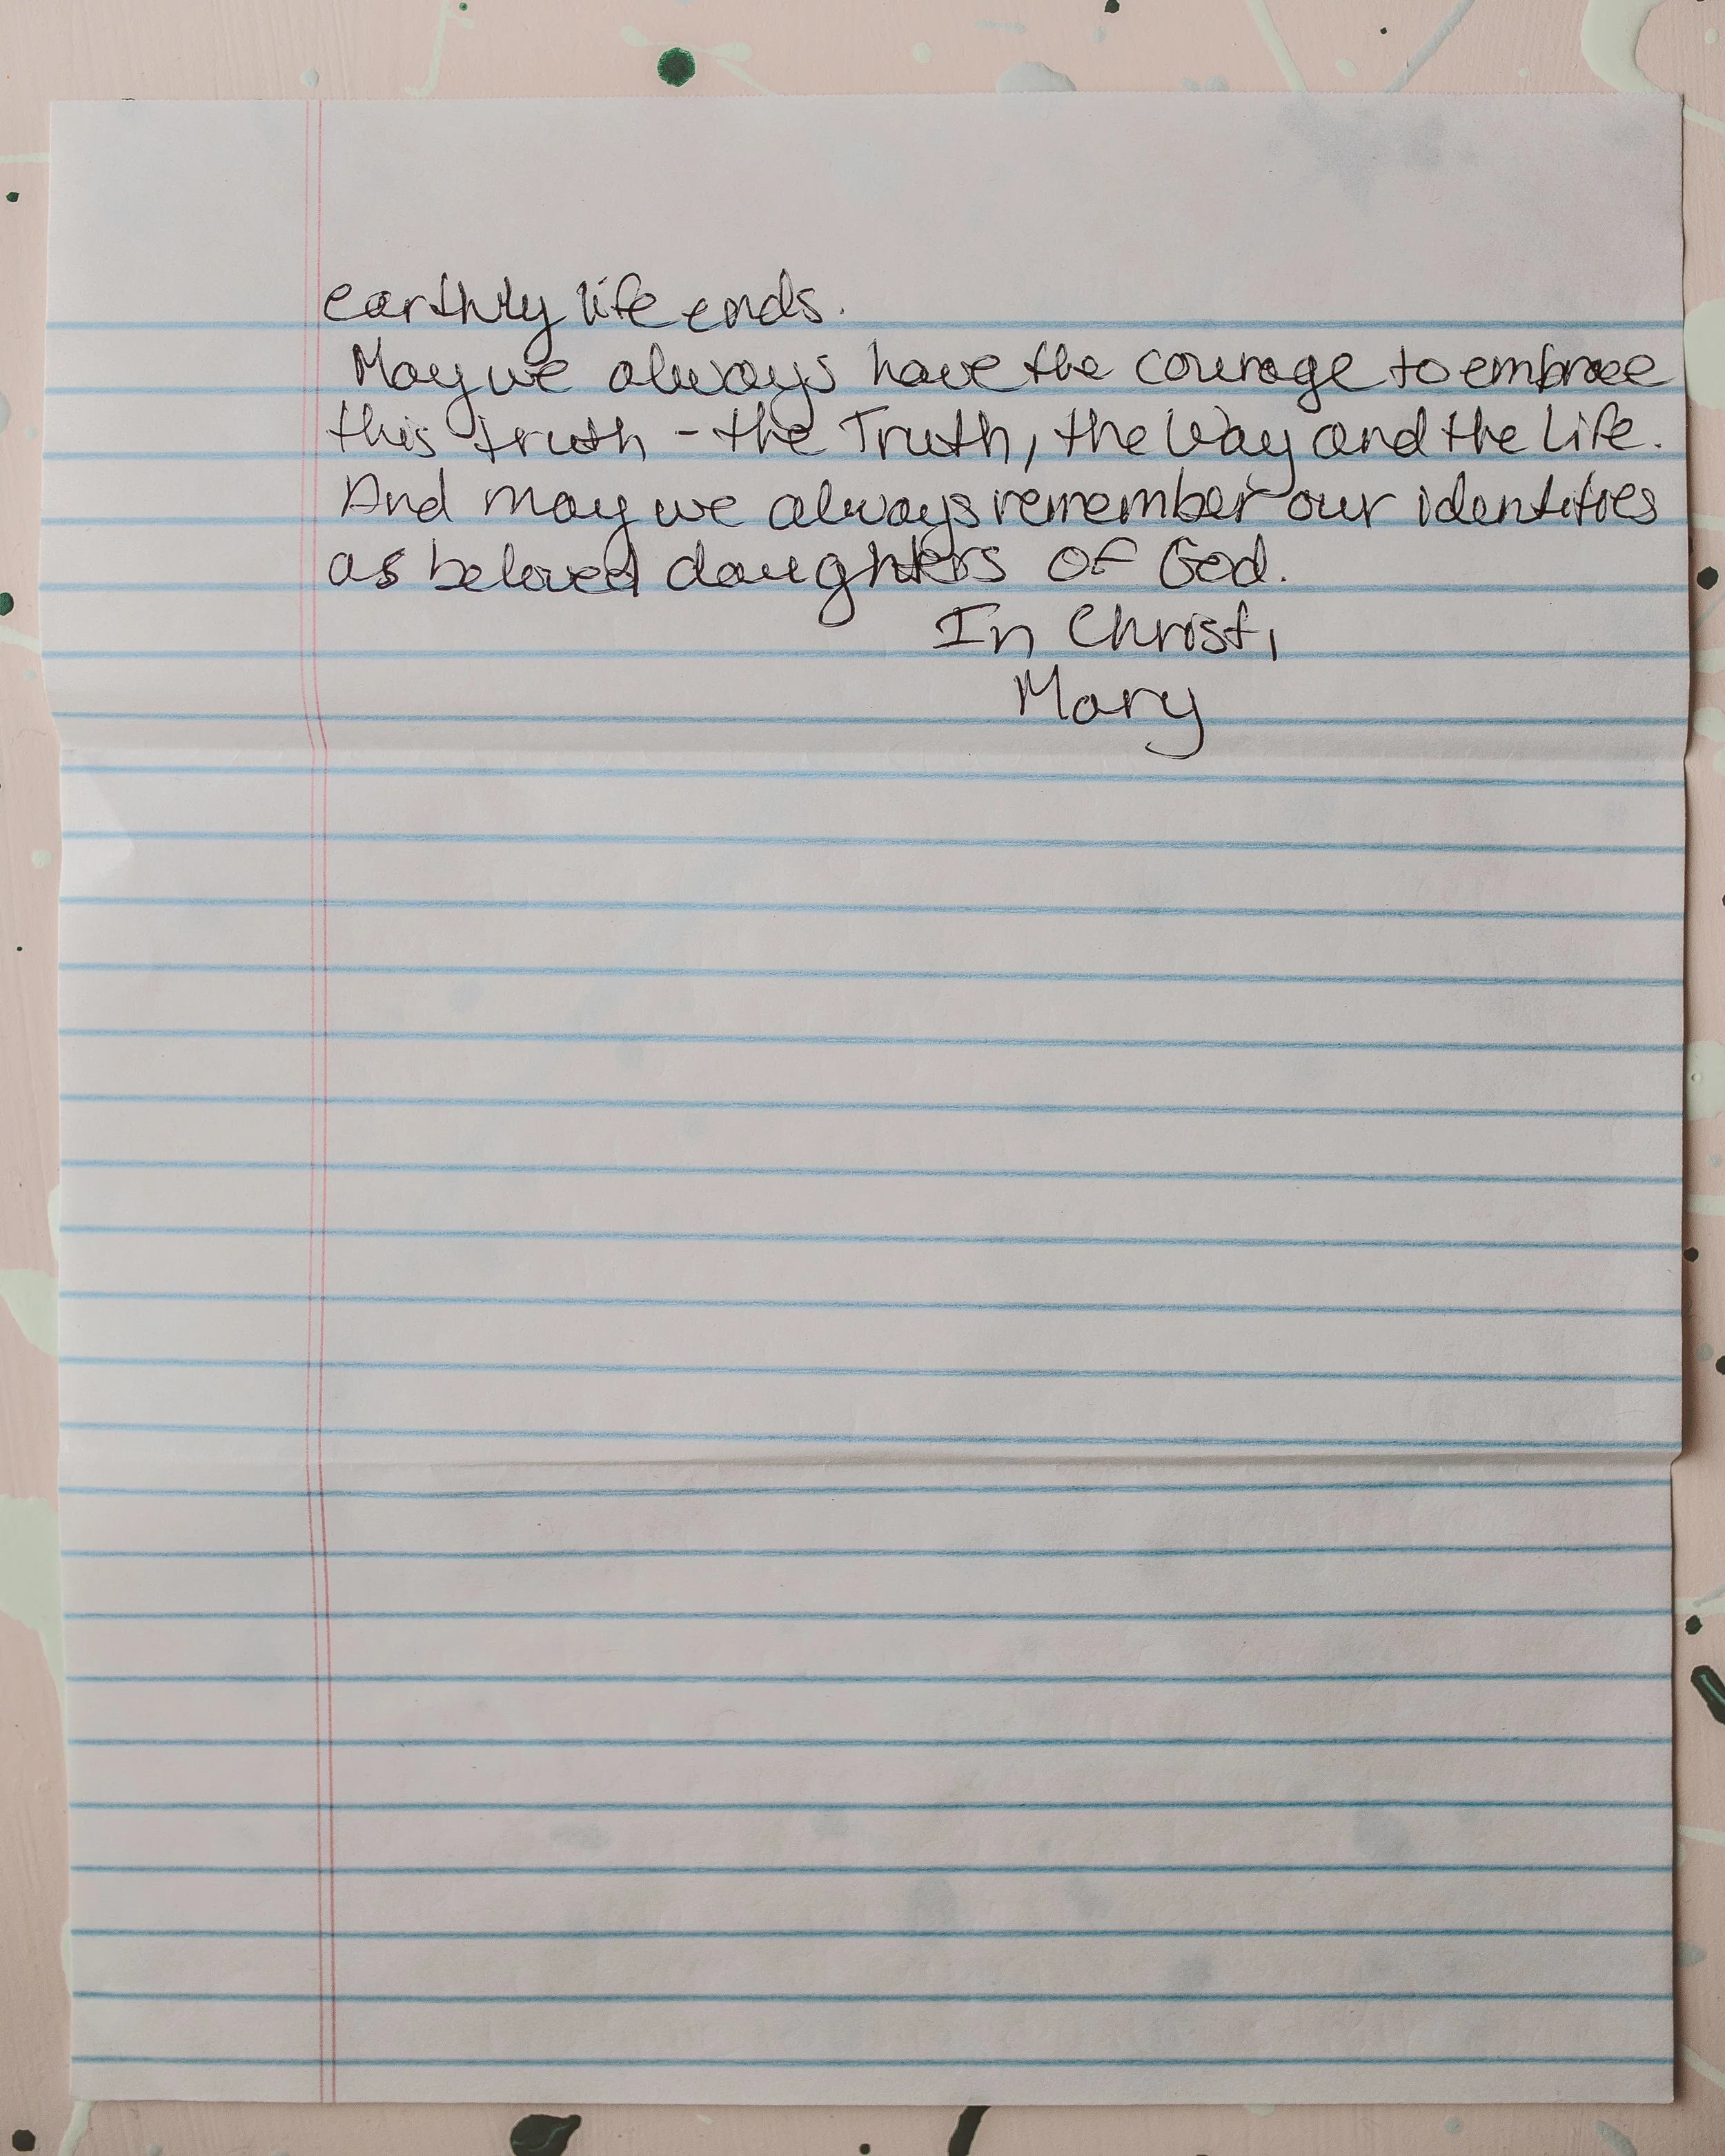 earthly life ends.
May we always have the courage to embrace
this truth - the Truth, the Way and the Life.
And may we always remember our identities
as beloved daughters of God.
In Christ,
Mary